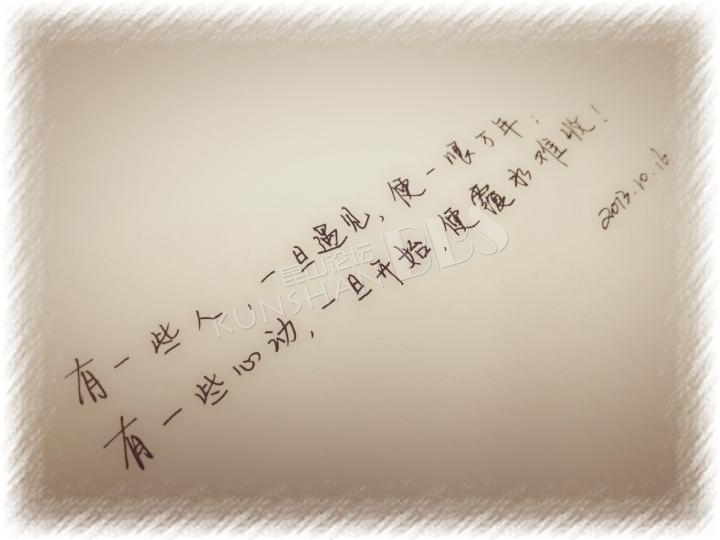 有一些人，一旦遇见，便一眼万年；
有一些心动，一旦开始，便覆水难收！
2013.10.16
昆山论坛
KUNSHAN BBS